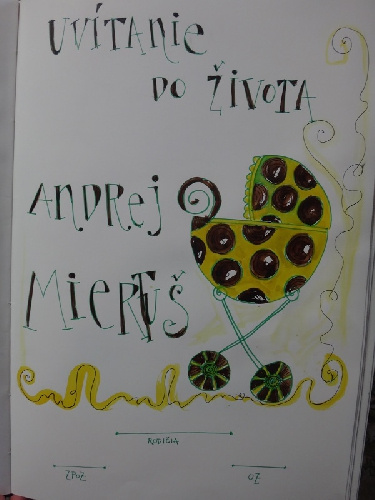 UVÍTANIE
DO ŽIVOTA
ANDREJ
MIERTUŠ
RODIČIA
ZPOZ OZ